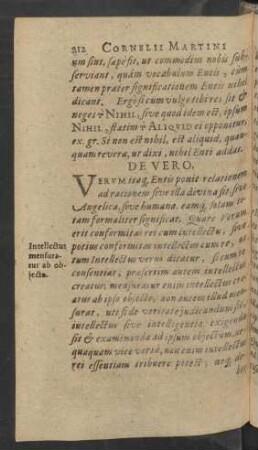 212 CORNELII MARTINI
um sint, sæpe fit, ut commodius nobis sub-
serviant, quàm vocabulum Entis, cùm
tamen præter significationem Entis nihil
dicant. Ergo sicum vulgo tibi res sit &
neges τὸ NIHIL, sive quod idem est, ipsum
NIHIL, statim τὸ ALIQVID ei opponitur,
ex. gr. Si non est nihil, est aliquid, quam-
quam revera, ut dixi, nihil Enti addat.
DE VERO.
VERVM itaq, Enti ponit relationem
ad rationem sive illa divina sit, sive
Angelica, sive humana. eamq, solum
tam formaliter significat. Quare Verum
erit conformitas rei cum intellectu, sive
potius conformitas intellectus cum re,
tum Intellectus verus dicatur, si cum re
consentiat, præsertim autem intellectus
creatus, mensuratur enim intellectus cre-
atus ab ipso objecto, non autem illud men-
surat, uti si de veritate judicandum sit
intellectus sive intelligentia exigenda
sit & examinanda ad ipsum objectum,
quaquam vice versâ, non enim intellectus
rei essentiam tribuere potest, neq,
Intellectus
mensura-
tur ab ob-
jecto.